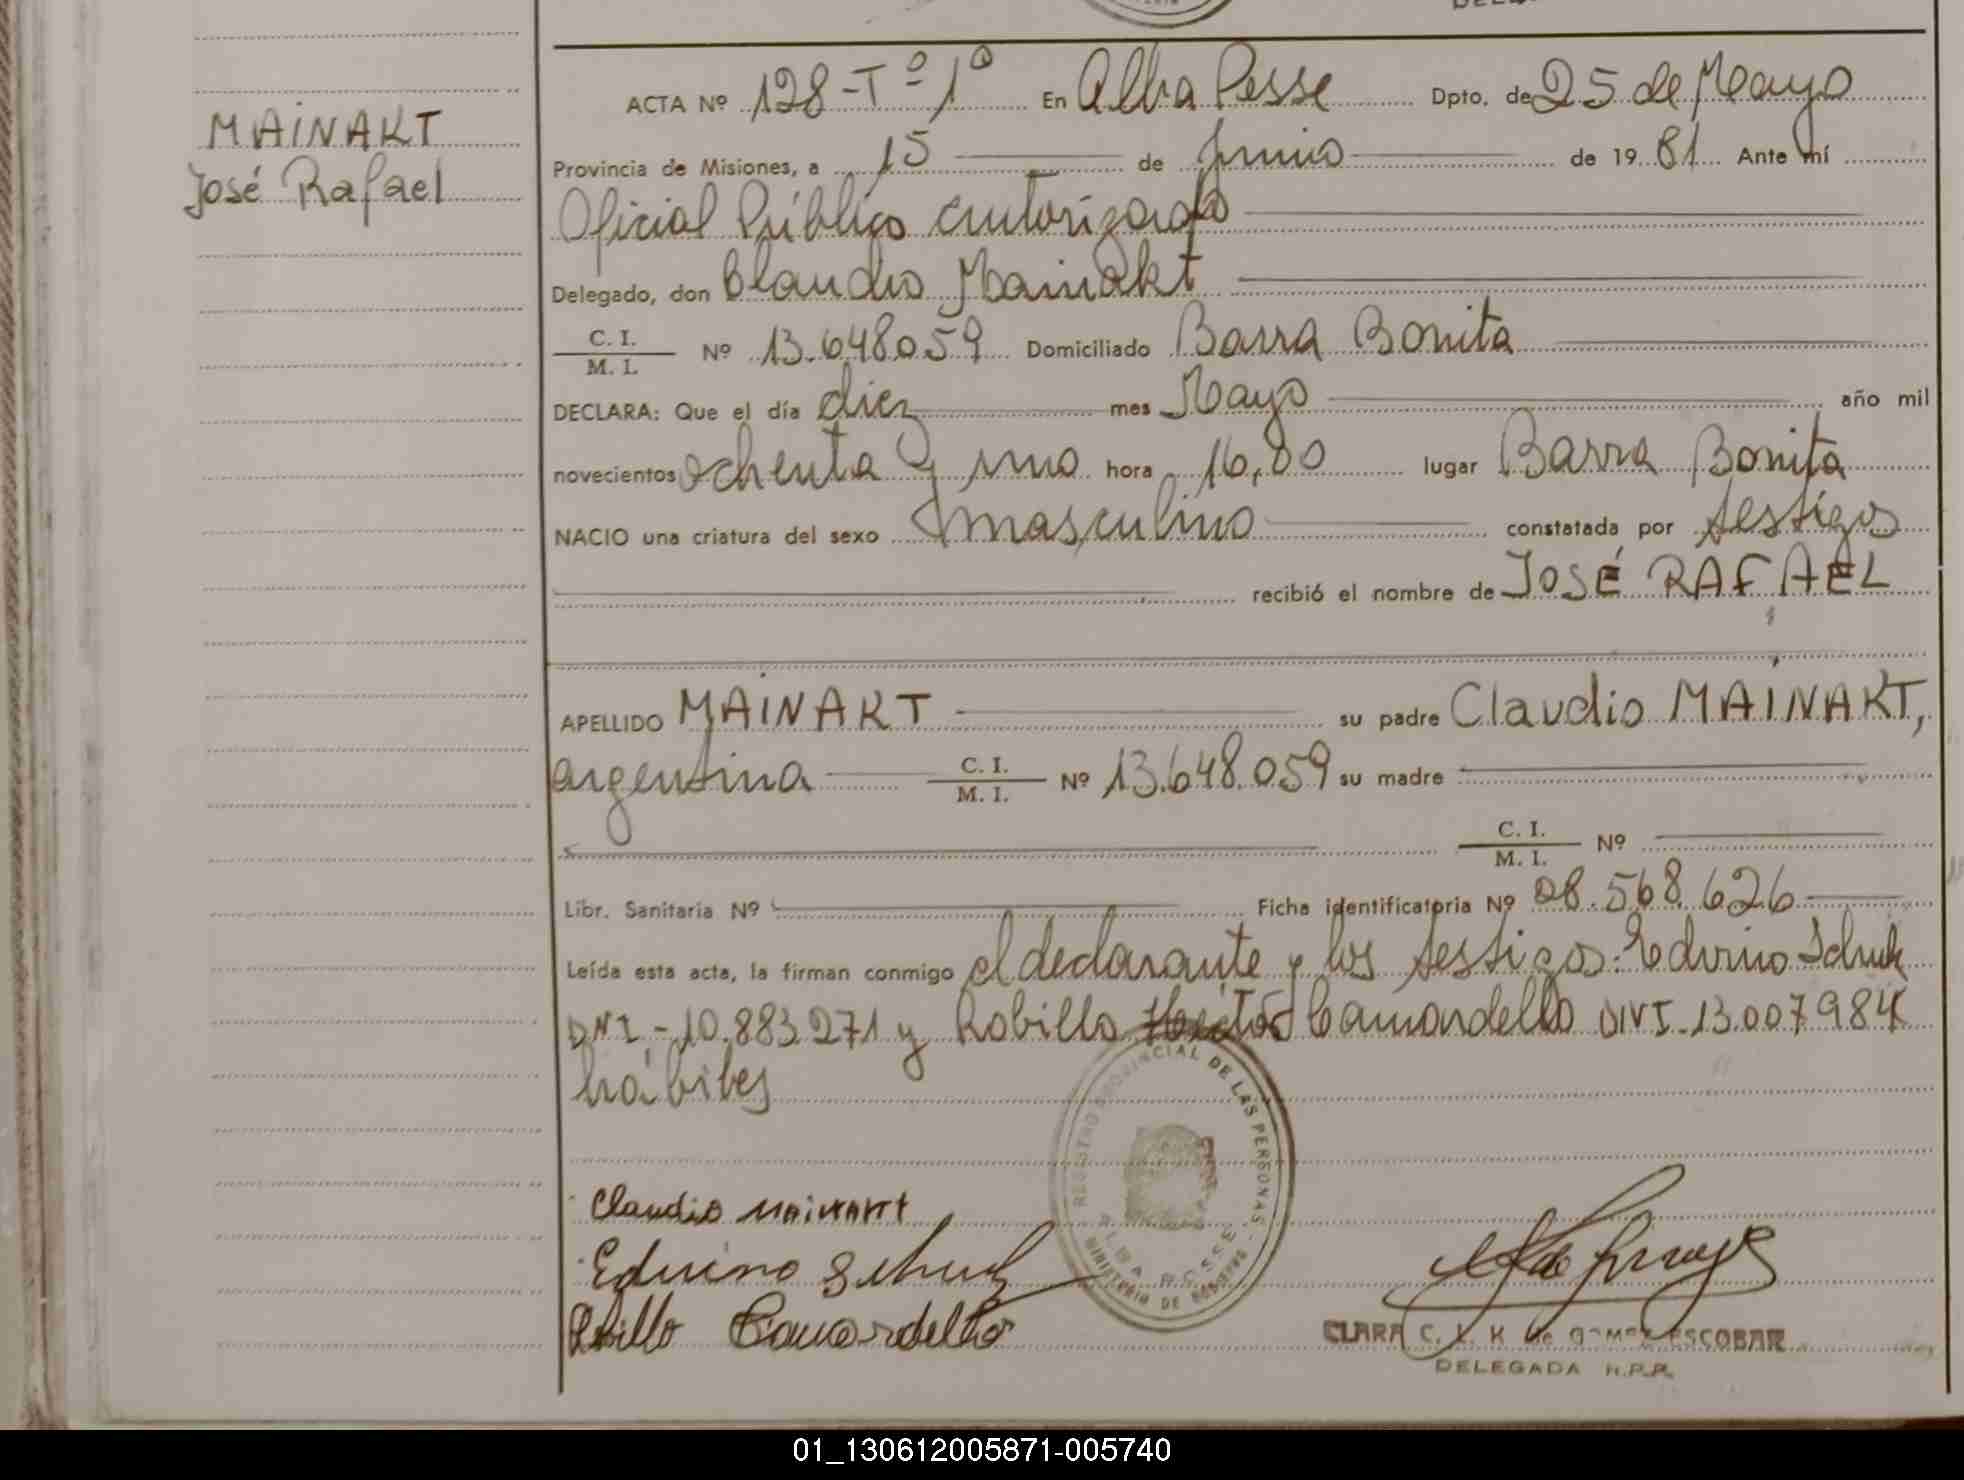 ACTA Nº 128-Tº 1º En Alba Posse Dpto. de 25 de Mayo
MAINAKT
Provincia de Misiones, a 15 de Junio de 1981 Ante mí
José Rafael
Oficial Público autorizado
Delegado, don Claudio Mainakt
C. I.
M. I. Nº 13.648.059 Domiciliado Barra Bonita
DECLARA: Que el día diez mes Mayo año mil
novecientos ochenta y uno hora 16,00 lugar Barra Bonita
NACIO una criatura del sexo masculino constatada por testigos
recibió el nombre de JOSÉ RAFAEL
APELLIDO MAINAKT su padre Claudio MAINAKT,
argentina C. I. M. I. Nº 13.648.059 su madre
C. I. M. I. Nº
Libr. Sanitaria Nº Ficha identificatoria Nº 28.568.626
Leída esta acta, la firman conmigo el declarante y los testigos: Eduino Schuk
DNI-10.883.271 y Robillo Camardello DNI-13.007984
hábiles
REGISTRO PROVINCIAL DE LAS PERSONAS
ALBA POSSE
MINISTERIO DE GOBIERNO
Claudio MAINAKT
Eduino Schuk
Robillo Camardello
CLARA C. L. K de GOMEZ ESCOBAR
DELEGADA R.P.P.
01_130612005871-005740